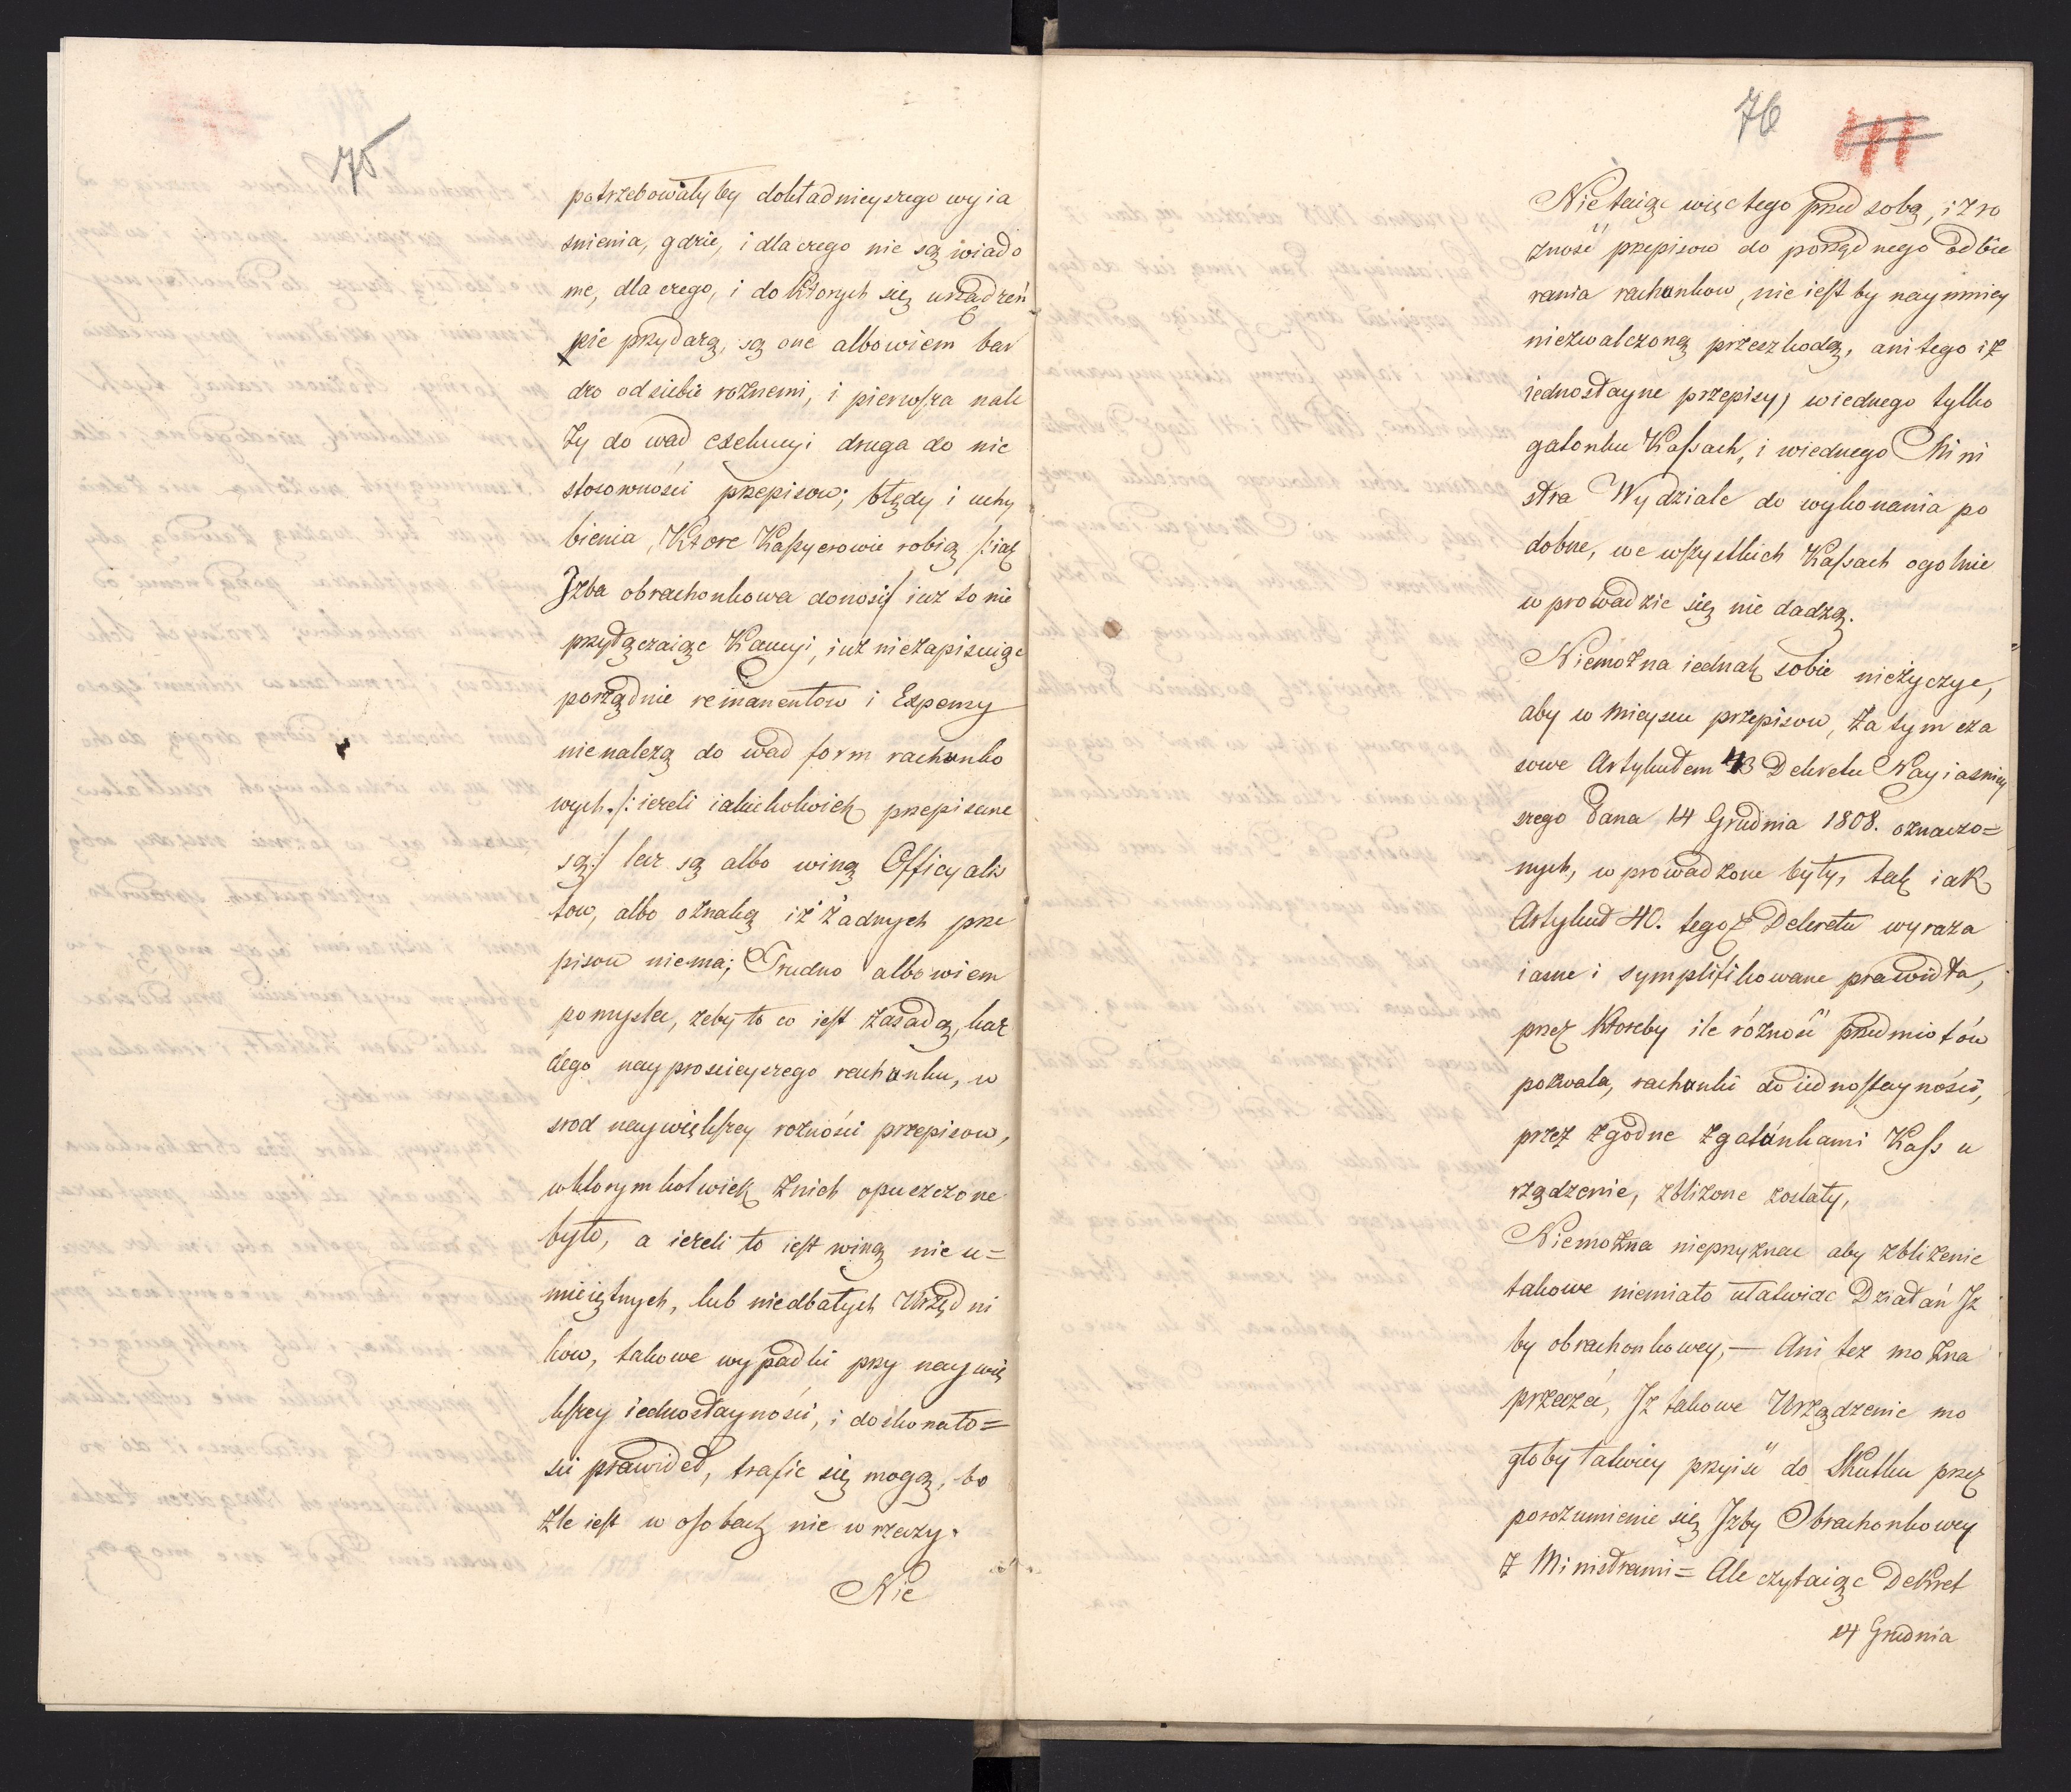 75
potrzebowały by dokładnieyszego wyia
snienia, gdzie, i dlaczego nie są wiado
me, dla czego, i do ktorych się urządzeń
nie przydarzą, są one albowiem bar
dzo od siebie rożnemi, i pierwsza nale
ży do wad exekucyi druga do nie
stosowności przepisow; błędy i uchy
bienia, Ktore Kassyerowie robią /:iak
Izba obrachonkowa donosi:/ iuż to nie
przyłączaiąc Kaucyi, iuż niezapisuiąc
porządnie remanentow i Expensy
nienalezą do wad form rachunko
wych. /:ieżeli iakiekolwiek przepisane
są:/ lecz są albo winą Officyalis
tow, albo oznaką iż żadnych prze
pisow niema; Trudno albowiem
pomysleć, żeby to co iest zasadą, każ
dego nayprościeyszego rachunku, w
srod naywiększey rożności przepisow,
wktorymkolwiek znich opuszczone
było, a ieżeli to iest winą nie u=
mieiętnych, lub niedbałych Urzędni
kow, takowe wypadki przy naywię
kszey iednostayności, i doskonało=
ści prawideł, trafić się mogą, bo
złe iest w osobach nie w rzeczy.
Nie
76
Nietaiąc więc tego przed sobą, iż ro
żność przepisow do porządnego odbie
rania rachunkow, nie iest by naymniey
niezwalczoną przeszkodą, ani tego iż
iednostayne przepisy, wiednego tylko
gatonku Kassach, i wiednego Mini
stra Wydziale do wykonania po
dobne, we wszystkich Kassach ogolnie
wprowadzić się nie dadzą.
Niemożna iednak sobie nieżyczyć,
aby w mieyscu przepisow, zatymcza
sowe Artykułem 43 Dekretu Nayiasniey
szego Pana 14 Grudnia 1808. oznaczo=
nych, wprowadzone były, tak iak
Artykuł 40. tegoż Dekretu wyraza
iasne i symplifikowane prawidła,
przez ktoreby ile różność przedmiotów
pozwala, rachunki do iednostayności,
przez zgodne zgatunkami Kass u
rządzenie, zbliżone zostały,
Niemożna nieprzyznać aby zbliżenie
takowe niemiało ułatwiać Działań Iz
by obrachonkowey, — Ani też można
przeczeć, Iż takowe Urządzenie mo
głoby łatwiey przyiść do Skutku przez
porozumienie się Izby Obrachonkowey
z Ministrami = Ale czytaiąc Dekret
14 Grudnia